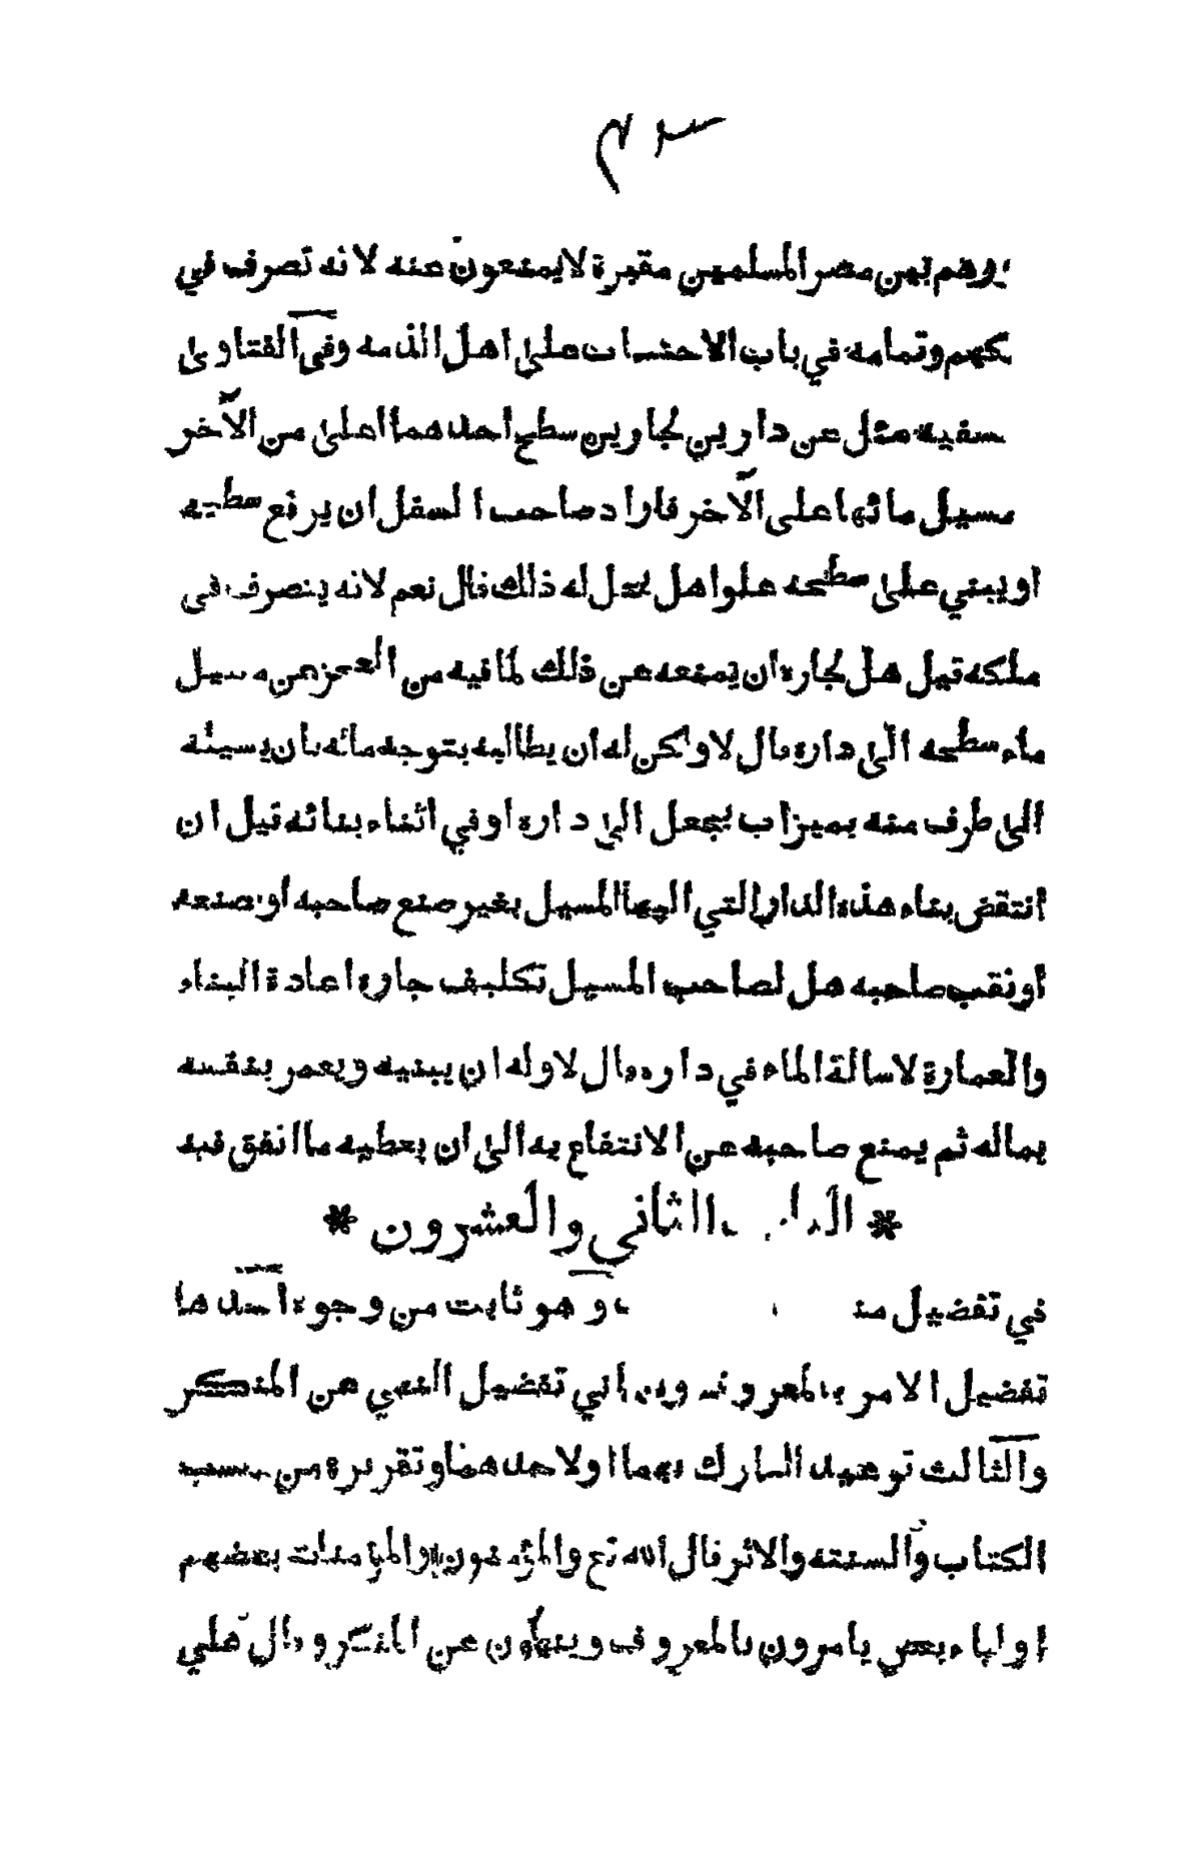 دورهم بهن مصر المسلمين مقبرة لا يمنعون عنه لانه تصرف في
كهم وتمامه في باب الاحتساب على اهل الذمه وفي الفتاوى
سفيه مثل عن دارين لجارين سطح احدهما اعلى من الآخر
مسيل مائها على الآخر فاراد صاحب السفل ان يرفع سطحه
او يبني على سطحه علوا هل يحل له ذلك قال نعم لانه يتصرف في
ملكه قيل هل لجاره ان يمنعه عن ذلك لما فيه من العجز عن مسيل
ماء سطحه الى داره قال لا ولكن له ان يطالبه بتوجه مائه بان يسيئه
الى طرف منه بميزاب يجعل الى داره او في اثناء بنائه قيل ان
انتقض بناء هذه الدار التي اليها المسيل بغير صنع صاحبه او بصنعه
او نقب صاحبه هل لصاحب المسيل تكليف جاره اعادة البناء
والعمارة لاسالة الماء في داره قال لا وله ان يبنيه ويعمر بنفسه
بماله ثم يمنع صاحبه عن الانتفاع به الى ان يعطيه ما انفق فيه
* الباب الثاني والعشرون *
في تفضيل وهو ثابت من وجوه احدها
تفضيل الامر بالمعروف والثاني تفضيل النهي عن المنكر
والثالث توعيد التارك بهما او لاحدهما وتقريره من حيث
الكتاب والسنته والاثر قال الله تع والمؤمنون والمؤمنات بعضهم
اولياء بعض يامرون بالمعروف وينهون عن المنكر وقال على